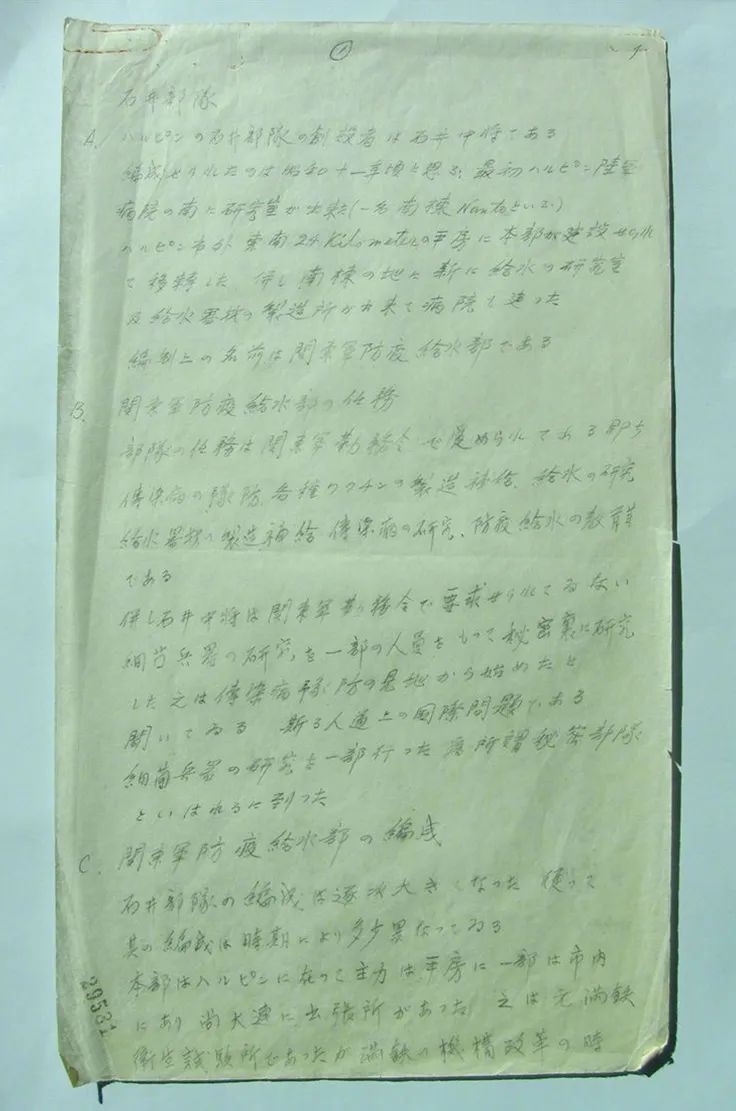 ①
石井部隊
A. ハルピンの石井部隊の創設者は石井中将である
編成せられたのは昭和十一年頃と思る、最初ハルピン陸軍
病院の南に研究室が出来た(一名南棟 といふ)
ハルピン市外東南24Kilometerの平房に本部が建設せられ
て移転した、併し南棟の地に新に給水の研究室
及給水器材の製造所が出来て病院と違った
編制上の名前は関東軍防疫給水部である
B. 関東軍防疫給水部の任務
部隊の任務は関東軍勤務令で定められてある即ち
傳染病の豫防、各種ワクチンの製造補給、給水の研究
給水器材の製造補給、傳染病の研究、防疫給水の教育
である
併し石井中将は関東軍勤務令で要求せられてゐない
細菌兵器の研究を一部の人員をもって秘密裏に研究
した之は傳染病豫防の見地から始めたと
聞いてゐる 斯る人道上の国際問題である
細菌兵器の研究を一部行った為所謂秘密部隊
といはれるに到った
C. 関東軍防疫給水部の編成
石井部隊の編成は逐次大きくなった 従って
其の編成は時期により多少異なってゐる
本部はハルピンに在って主力は平房に一部は市内
にあり尚大連に出張所があった 之は元満鉄
衛生試験所であったが満鉄の機構改革の時
29531